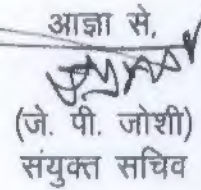 आज्ञा से,
(जे. पी. जोशी)
संयुक्त सचिव